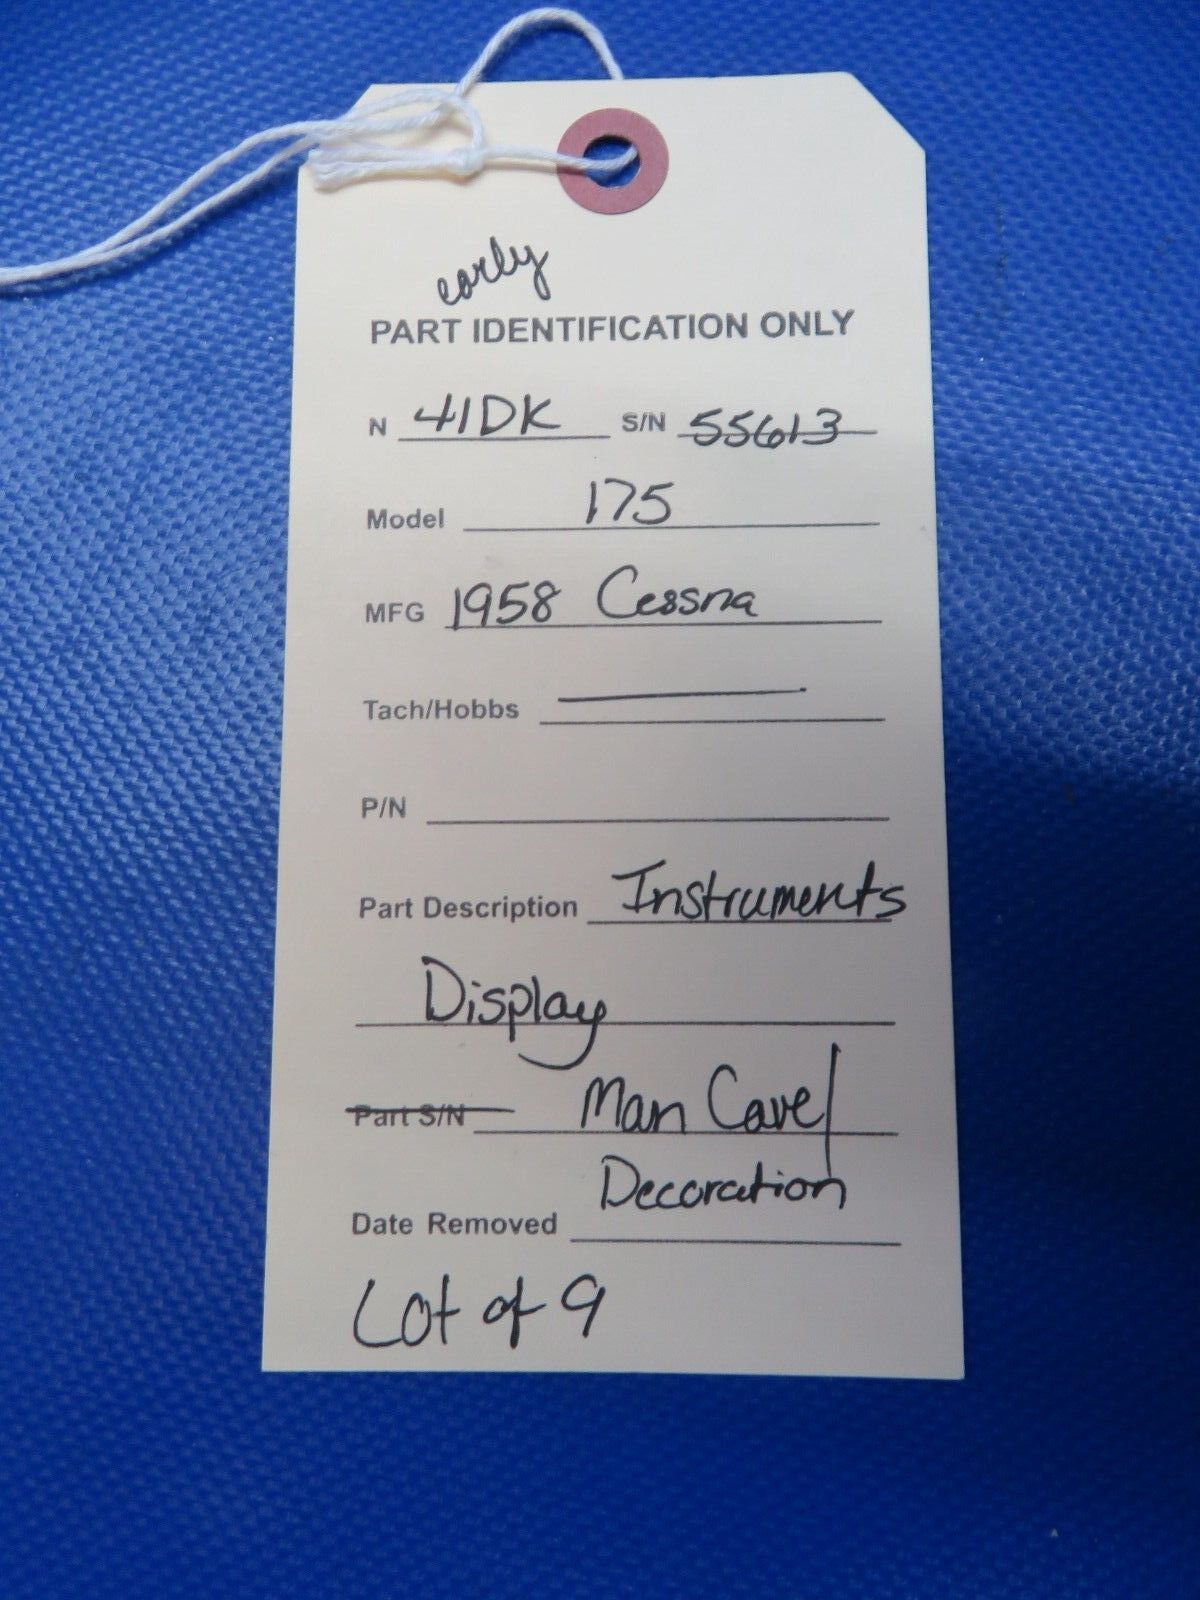 early
PART IDENTIFICATION ONLY
N 41DK S/N 55613
Model 175
MFG 1958 Cessna
Tach/Hobbs
P/N
Part Description Instruments
Display
Part S/N Man Cave/
Decoration
Date Removed
Lot of 9